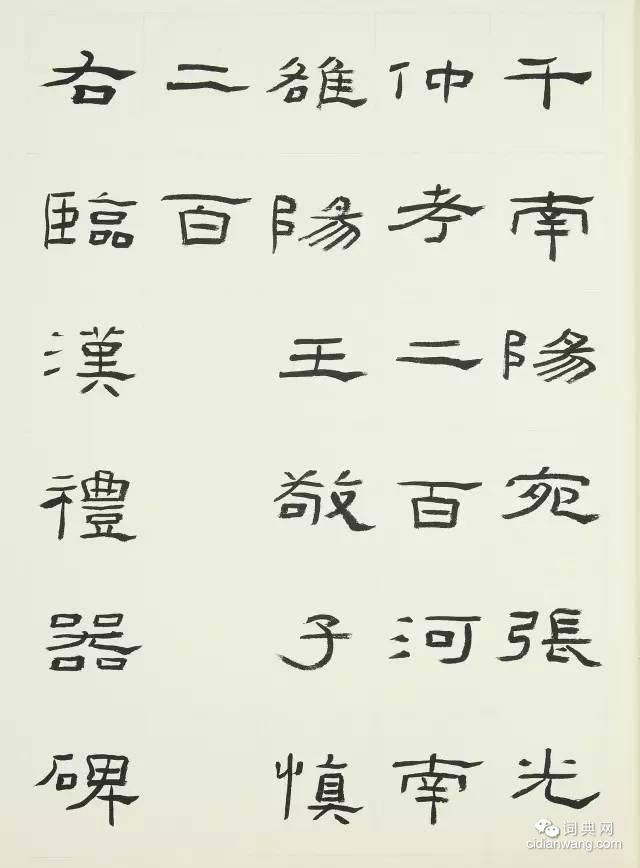 千南陽宛張光
仲孝二百河南
雒陽王敬子慎
二百
右臨漢禮器碑
词典网
cidianwang.com